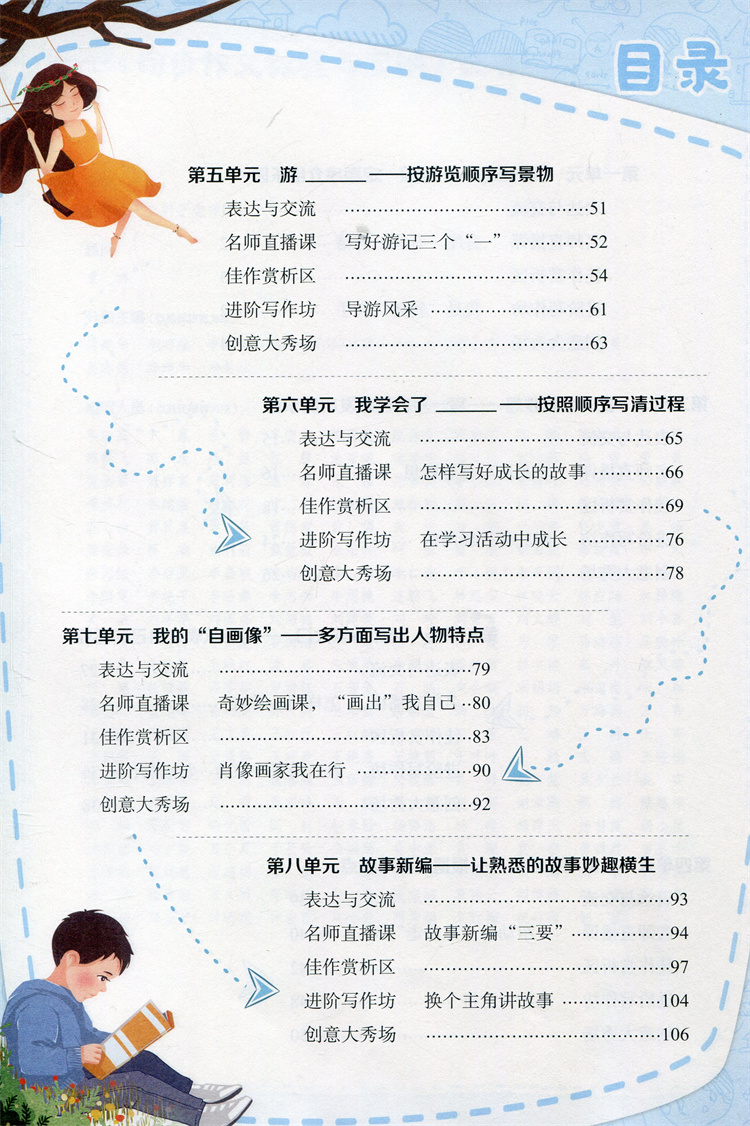 目录
第五单元 游 ________ ——按游览顺序写景物
表达与交流 ……………………………51
名师直播课 写好游记三个“一” …………52
佳作赏析区 ……………………………54
进阶写作坊 导游风采 …………………61
创意大秀场 ……………………………63
第六单元 我学会了 ________ ——按照顺序写清过程
表达与交流 ……………………………65
名师直播课 怎样写好成长的故事 …………66
佳作赏析区 ……………………………69
进阶写作坊 在学习活动中成长 …………76
创意大秀场 ……………………………78
第七单元 我的“自画像”——多方面写出人物特点
表达与交流 ……………………………79
名师直播课 奇妙绘画课，“画出”我自己 ··80
佳作赏析区 ……………………………83
进阶写作坊 肖像画家我在行 ……………90
创意大秀场 ……………………………92
第八单元 故事新编——让熟悉的故事妙趣横生
表达与交流 ……………………………93
名师直播课 故事新编“三要” ……………94
佳作赏析区 ……………………………97
进阶写作坊 换个主角讲故事 ……………104
创意大秀场 ……………………………106